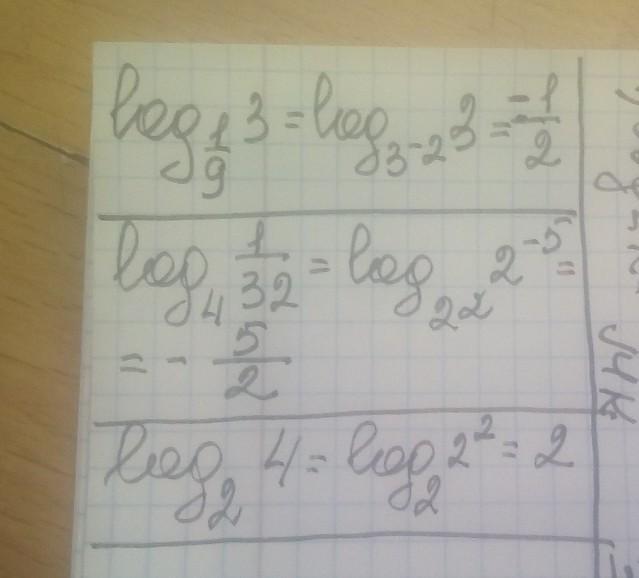 log_{1/9} 3 = log_{3^{-2}} 3 = -1/2
log_4 1/32 = log_{2^2} 2^{-5} =
= - 5/2
log_2 4 = log_2 2^2 = 2